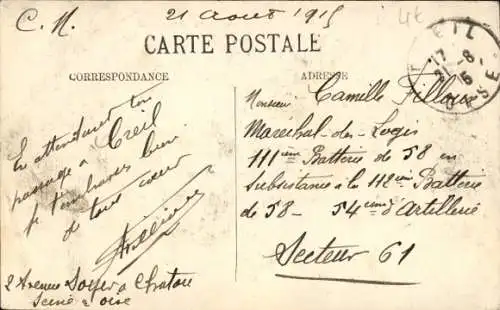 C. M. 21 Aout 1915
4€
CARTE POSTALE
CORRESPONDANCE
ADRESSE
EIL
17
21-8
15
En attendant ton
passage à Creil
je t'embrasse bien
de tout cœur
2 Avenue à Chatou
Seine & Oise
Monsieur Camille Filloux
Maréchal-des-Logis
111ième Batterie de 58 en
Subsistance à la 112ième Batterie
de 58 - 54ième d'Artillerie
Secteur 61